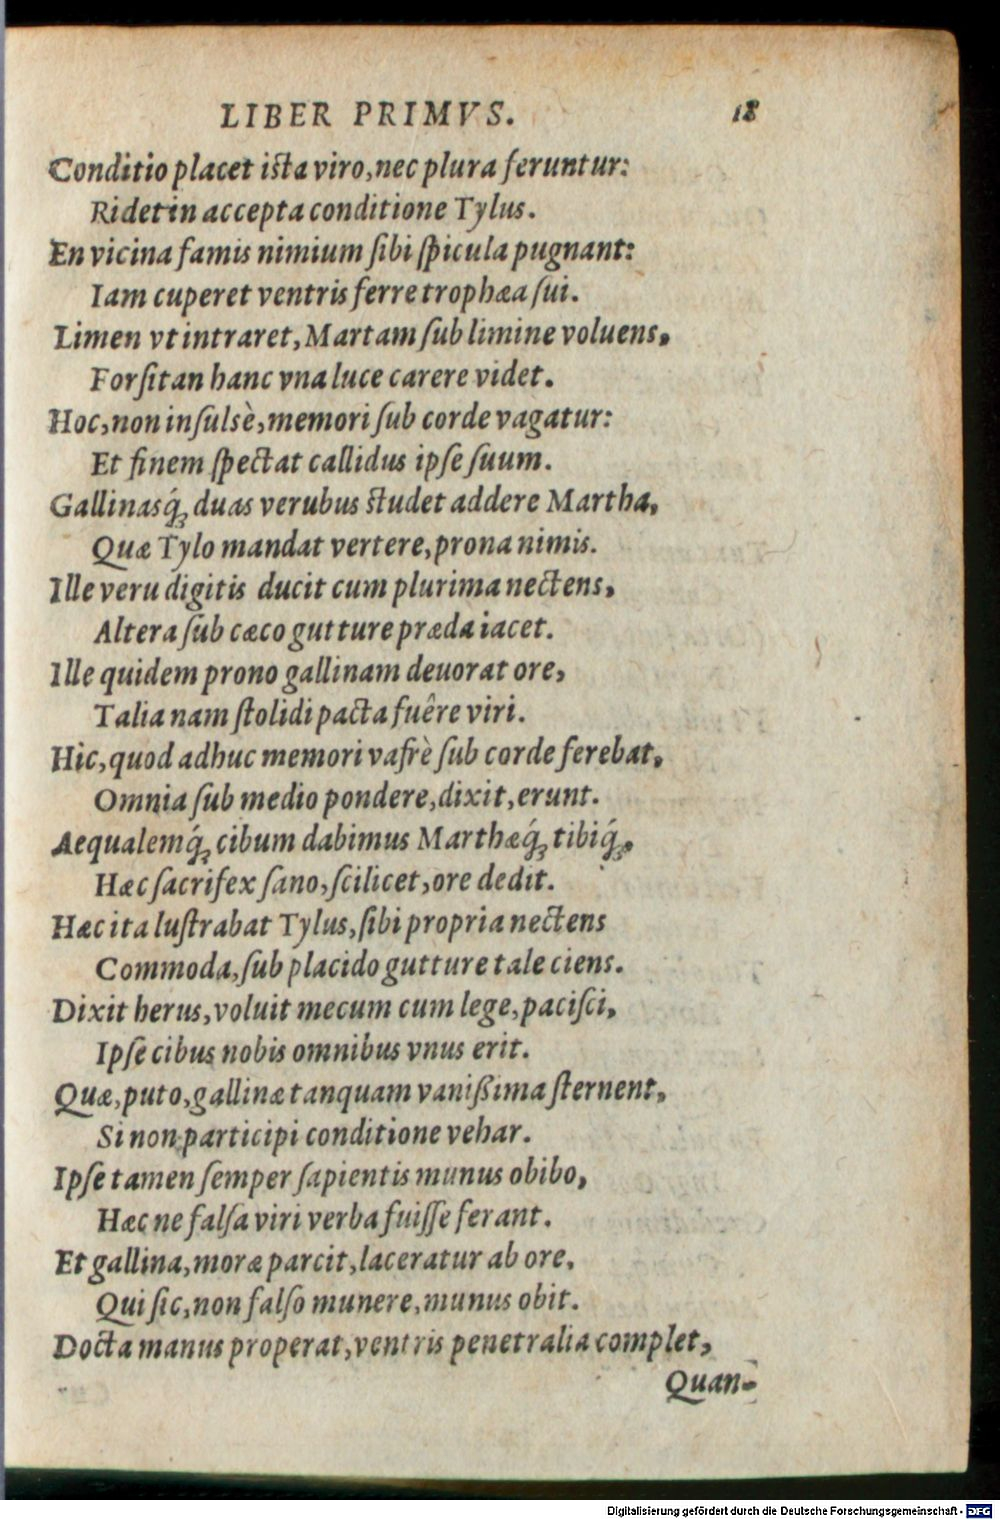 LIBER PRIMVS. 18
Conditio placet ista viro, nec plura feruntur:
Ridet in accepta conditione Tylus.
En vicina famis nimium ſibi ſpicula pugnant:
Iam cuperet ventris ferre trophæa ſui.
Limen vt intraret, Martam ſub limine voluens,
Forſitan hanc vna luce carere videt.
Hoc, non inſulsè, memori ſub corde vagatur:
Et finem ſpectat callidus ipſe ſuum.
Gallinasq́ꝫ duas verubus ſtudet addere Martha,
Quæ Tylo mandat vertere, prona nimis.
Ille veru digitis ducit cum plurima nectens,
Altera ſub cæco gutture præda iacet.
Ille quidem prono gallinam deuorat ore,
Talia nam ſtolidi pacta fuêre viri.
Hic, quod adhuc memori vafrè ſub corde ferebat,
Omnia ſub medio pondere, dixit, erunt.
Aequalemq́ꝫ cibum dabimus Marthæq́ꝫ tibiq́ꝫ,
Hæc ſacrifex ſano, ſcilicet, ore dedit.
Hæc ita luſtrabat Tylus, ſibi propria nectens
Commoda, ſub placido gutture tale ciens.
Dixit herus, voluit mecum cum lege, paciſci,
Ipſe cibus nobis omnibus vnus erit.
Quæ, puto, gallinæ tanquam vanißima ſternent,
Si non participi conditione vehar.
Ipſe tamen ſemper ſapientis munus obibo,
Hæc ne falſa viri verba fuiſſe ferant.
Et gallina, moræ parcit, laceratur ab ore,
Qui ſic, non falſo munere, munus obit.
Docta manus properat, ventris penetralia complet,
Quan-
Digitalisierung gefördert durch die Deutsche Forschungsgemeinschaft - DFG